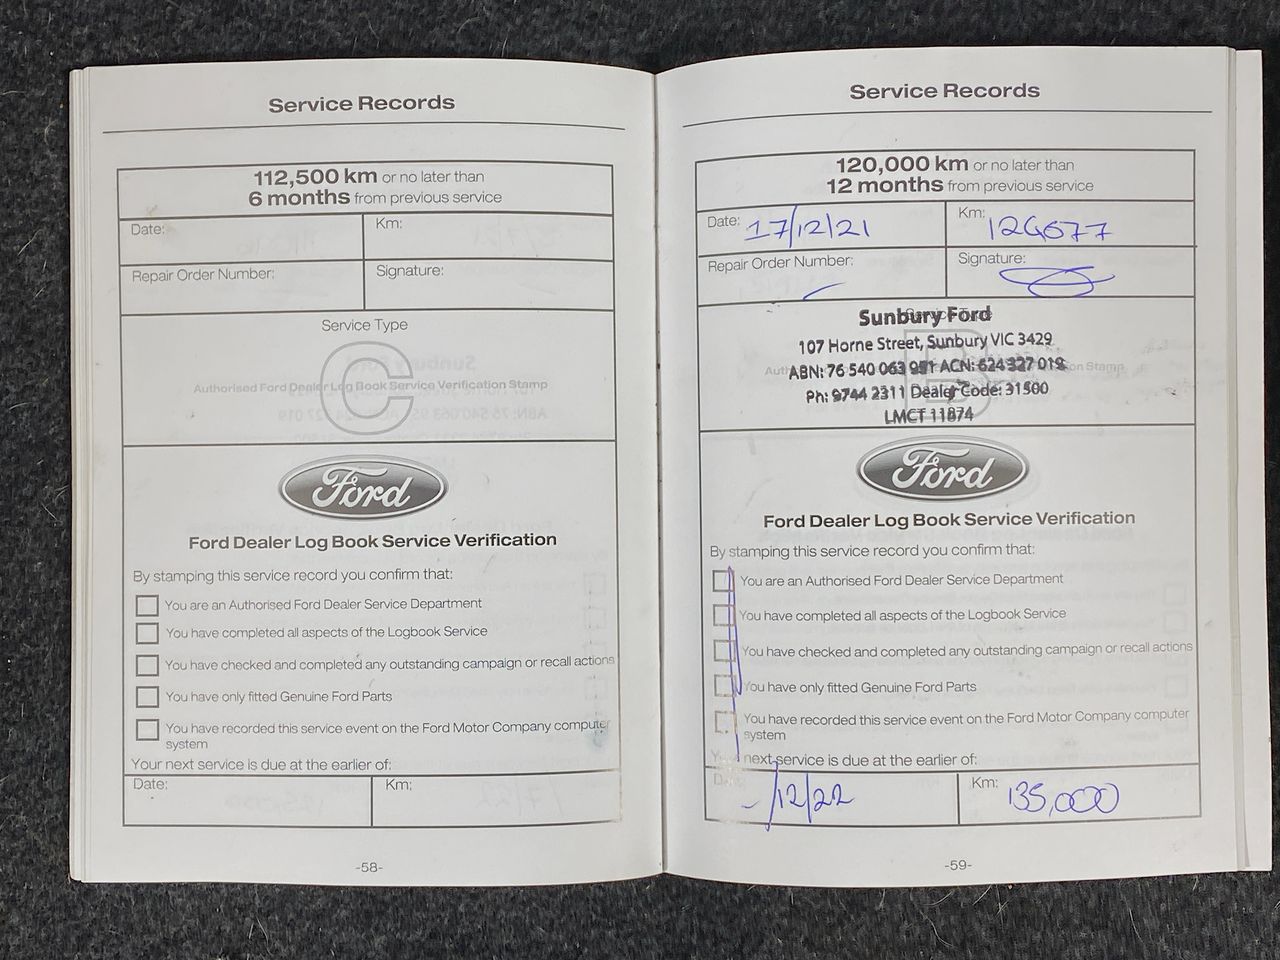 Service Records
112,500 km or no later than
6 months from previous service
Date:
Km:
Repair Order Number:
Signature:
Service Type
C
Authorised Ford Dealer Log Book Service Verification Stamp
Ford
Ford Dealer Log Book Service Verification
By stamping this service record you confirm that:
You are an Authorised Ford Dealer Service Department
You have completed all aspects of the Logbook Service
You have checked and completed any outstanding campaign or recall actions
You have only fitted Genuine Ford Parts
You have recorded this service event on the Ford Motor Company computer
system
Your next service is due at the earlier of:
Date:
Km:
-58-
Service Records
120,000 km or no later than
12 months from previous service
Date: 17/12/21
Km:
Repair Order Number:
Signature:
Sunbury Ford
107 Horne Street, Sunbury VIC 3429
ABN: 76 540 063 951 ACN: 624 327 019
Ph: 9744 2311 Dealer Code: 31500
LMCT 11874
B
Ford
Ford Dealer Log Book Service Verification
By stamping this service record you confirm that:
You are an Authorised Ford Dealer Service Department
You have completed all aspects of the Logbook Service
You have checked and completed any outstanding campaign or recall actions
You have only fitted Genuine Ford Parts
You have recorded this service event on the Ford Motor Company computer
system
Your next service is due at the earlier of:
Date: -/12/22
Km: 135,000
-59-